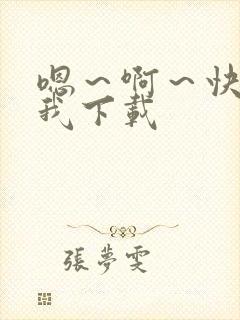 嗯～啊～快
我下載
張夢雯